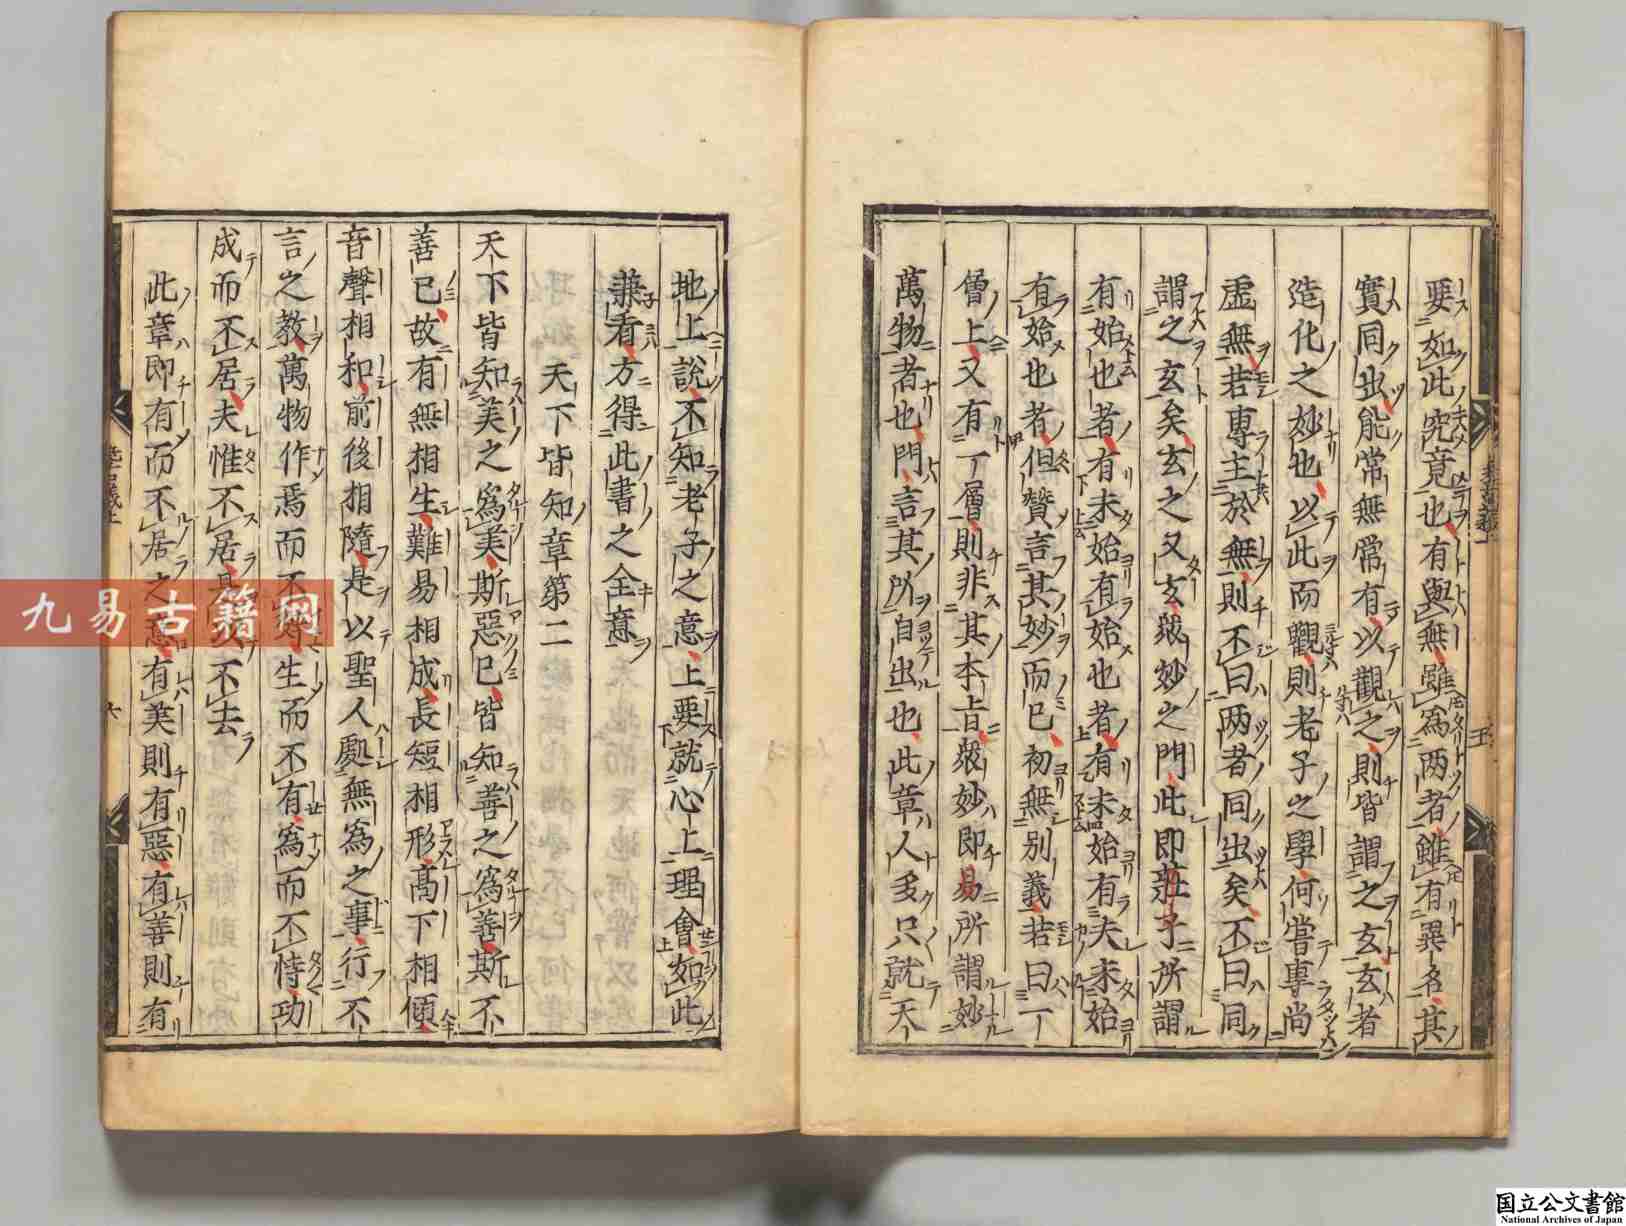 要如此究竟也有與無雖為兩者雖有異名其
實同出能常無常有以觀之則皆謂之玄玄者
造化之妙也以此而觀則老子之學何嘗專尚
虛無若專主於無則不曰兩者同出矣不曰同
謂之玄矣玄之又玄衆妙之門此即莊子所謂
有始也者有未始有始也者有未始有夫未始
有始也者但贊言其妙而已初無別義若曰一
層上又有一層則非其本旨衆妙即易所謂妙
萬物者也門言其所自出也此章人多只就天
地上說不知老子之意上要就心上理會如此
兼看方得此書之全意
天下皆知章第二
天下皆知美之為美斯惡已皆知善之為善斯不
善已故有無相生難易相成長短相形高下相傾
音聲相和前後相隨是以聖人處無為之事行不
言之教萬物作焉而不辭生而不有為而不恃功
成而不居夫惟不居是以不去
此章即有而不居之意有美則有惡有善則有
五
六
九易古籍网
国立公文書館
National Archives of Japan